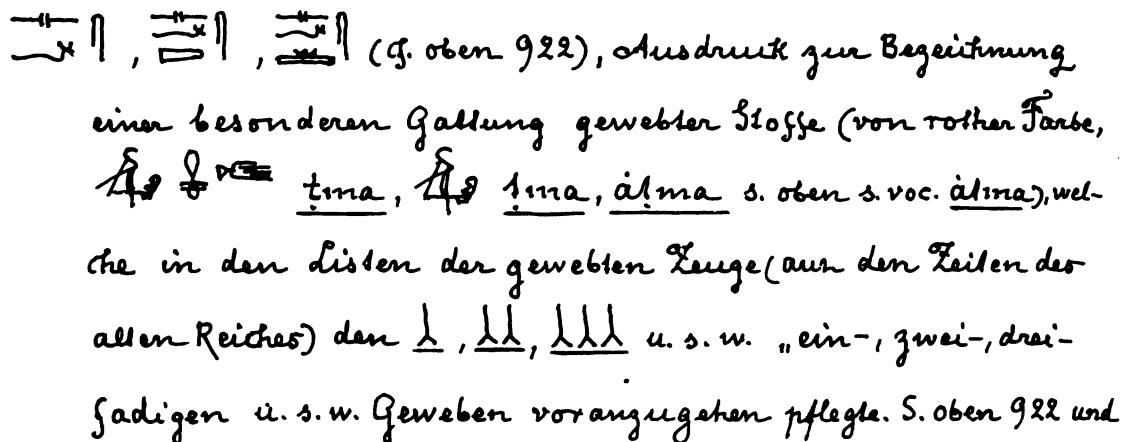 , , (cf. oben 922), Ausdruck zur Bezeichnung
einer besonderen Gattung gewebter Stoffe (von rother Farbe,
ṭma, ṭma, áṭma s. oben s. voc. áṭma), wel-
che in den Listen der gewebten Zeuge (aus den Zeiten des
alten Reiches) den , , u. s. w. „ein-, zwei-, drei-
fadigen u. s. w. Geweben voranzugehen pflegte. S. oben 922 und